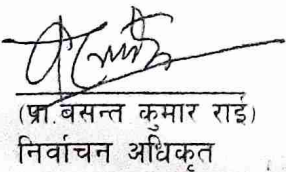 (प्रा.बसन्त कुमार राई)
निर्वाचन अधिकृत